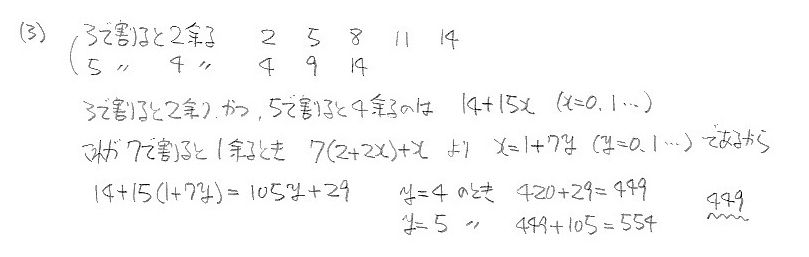 (3) 3で割ると2余る 2 5 8 11 14
5 〃 4 〃 4 9 14
3で割ると2余り、かつ、5で割ると4余るのは 14+15x (x=0.1…)
これが7で割ると1余るとき 7(2+2x)+x より x=1+7y (y=0.1…)であるから
14+15(1+7y)=105y+29 y=4のとき 420+29=449
y=5 〃 449+105=554 449